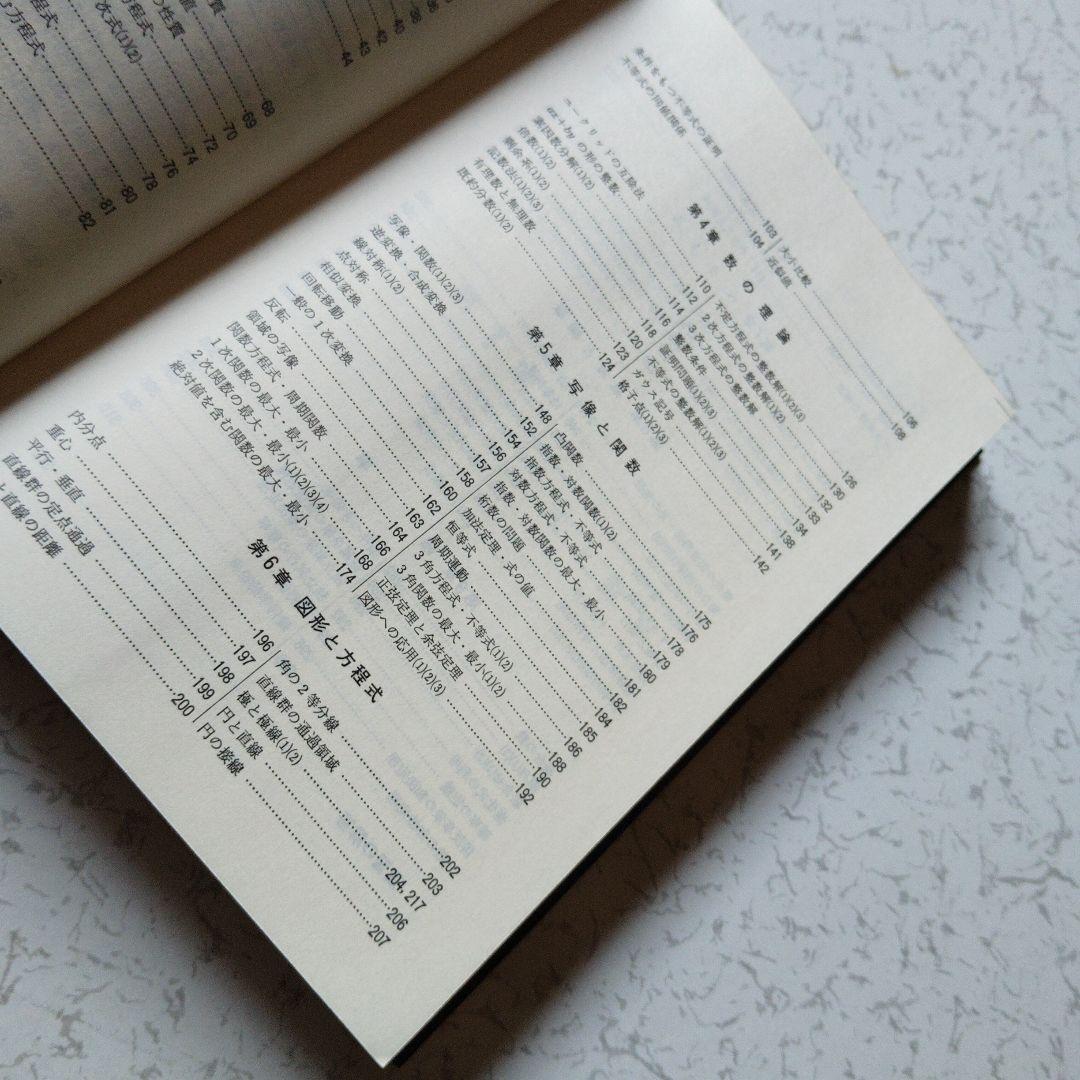 の性質
次式(1)(2)
方程式
む方程式
38
40
42
43
44
68
69
70
72
74
76
78
80
81
82
条件をもつ不等式の証明 103
不等式の同値関係 104
大小比較 106
近似値 108
第4章 数の理論
ユークリッドの互除法 110
ax+byの形の整数 112
素因数分解(1)(2) 114
倍数(1)(2) 116
剰余系(1)(2) 118
記数法(1)(2)(3) 120
有理数と無理数 123
既約分数(1)(2) 124
不定方程式の整数解(1)(2)(3) 126
2次方程式の整数解(1)(2) 130
3次方程式の整数解 132
整数条件 133
証明問題(1)(2)(3) 134
不等式の整数解(1)(2)(3) 138
ガウス記号 141
格子点(1)(2)(3) 142
第5章 写像と関数
写像・関数(1)(2)(3) 148
逆変換・合成変換 152
線対称(1)(2) 154
点対称 156
相似変換 157
回転移動 158
一般の1次変換 160
反転 162
領域の写像 163
関数方程式・周期関数 164
1次関数の最大・最小 166
2次関数の最大・最小(1)(2)(3)(4) 168
絶対値を含む関数の最大・最小 174
凸関数 175
指数・対数関数(1)(2) 176
指数方程式・不等式 178
対数方程式・不等式 179
指数・対数関数の最大・最小 180
桁数の問題 181
加法定理 式の値 182
恒等式 184
周期運動 185
3角方程式・不等式(1)(2) 186
3角関数の最大・最小(1)(2) 188
正弦定理と余弦定理 190
図形への応用(1)(2)(3) 192
第6章 図形と方程式
内分点 196
重心 197
平行・垂直 198
直線群の定点通過 199
と直線の距離 200
角の2等分線 202
直線群の通過領域 203
極と極線(1)(2) 204,217
円と直線 206
円の接線 207